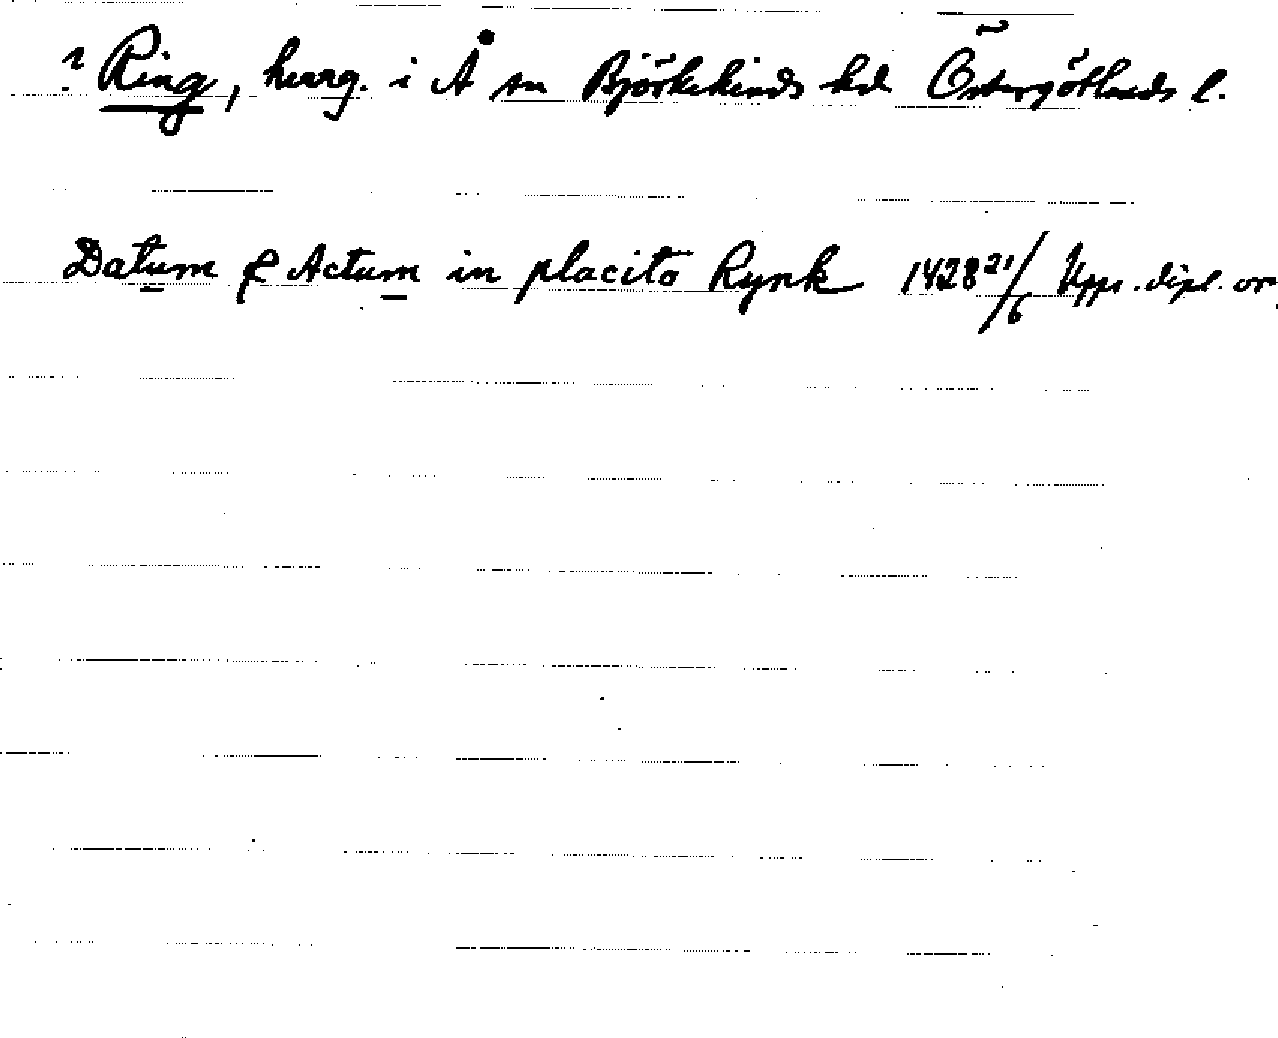 ? Ring, herrg. i Å sn Björkekinds hd Östergötlands l.
Datum & Actum in placito Rynk 1428 21/6 Upps. dipl. or